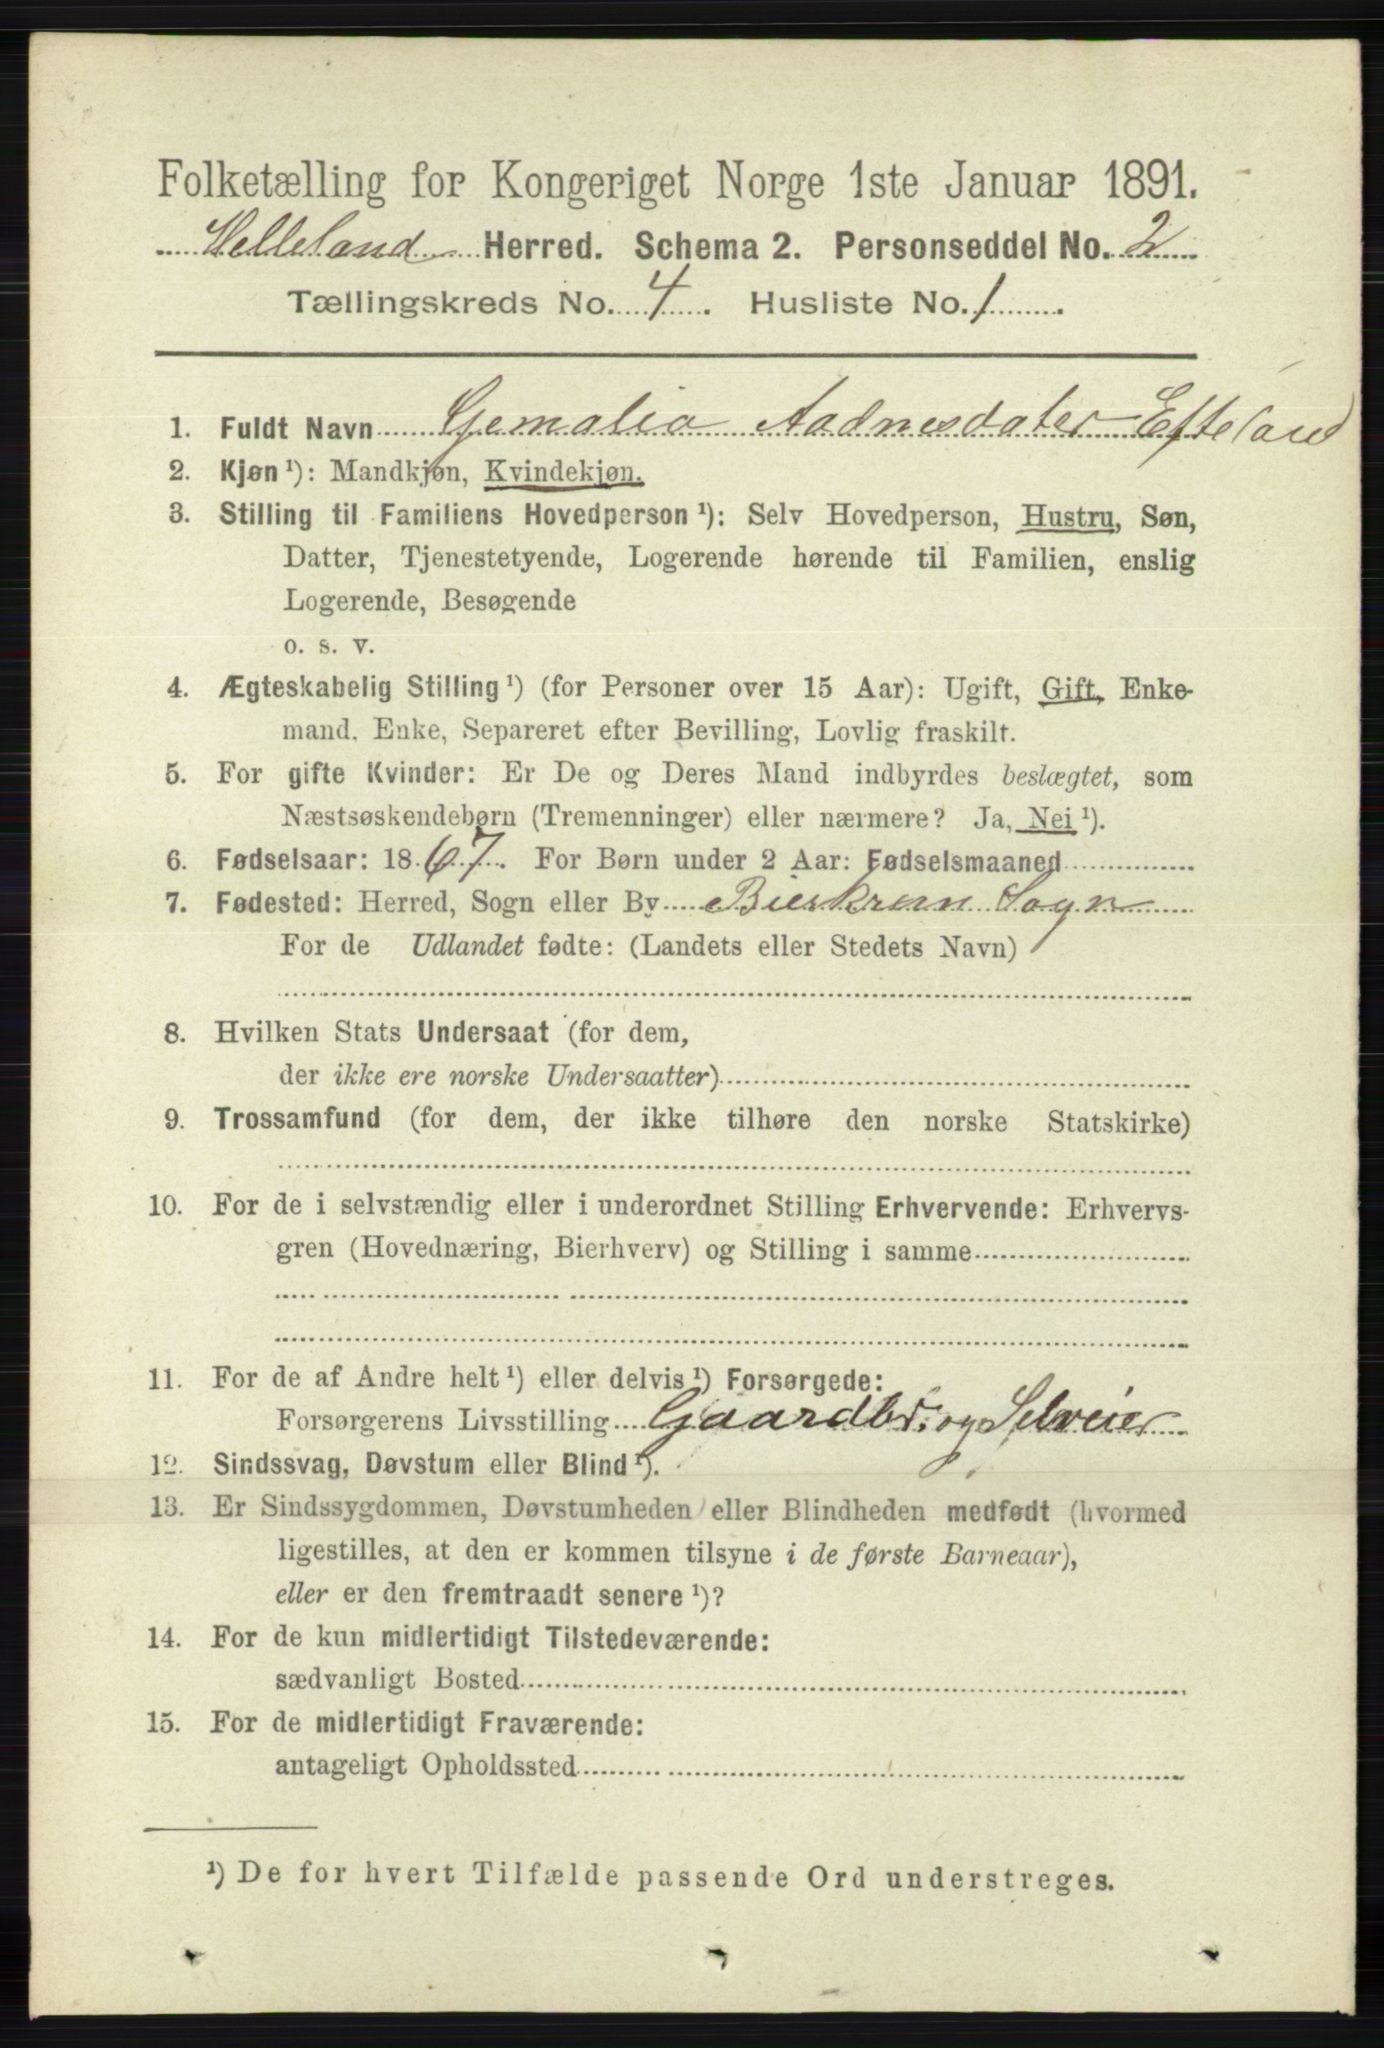 Folketælling for Kongeriget Norge 1ste Januar 1891.
Helleland Herred. Schema 2. Personseddel No. 2
Tællingskreds No. 4. Husliste No. 1.
1. Fuldt Navn Gemalia Aadnesdater Efteland
2. Kjøn ¹): Mandkjøn, Kvindekjøn.
3. Stilling til Familiens Hovedperson ¹): Selv Hovedperson, Hustru, Søn,
Datter, Tjenestetyende, Logerende hørende til Familien, enslig
Logerende, Besøgende
o. s. v.
4. Ægteskabelig Stilling ¹) (for Personer over 15 Aar): Ugift, Gift, Enke-
mand, Enke, Separeret efter Bevilling, Lovlig fraskilt.
5. For gifte Kvinder: Er De og Deres Mand indbyrdes beslægtet, som
Næstsøskendebørn (Tremenninger) eller nærmere? Ja, Nei ¹).
6. Fødselsaar: 1867. For Børn under 2 Aar: Fødselsmaaned
7. Fødested: Herred, Sogn eller By Bierkrem Sogn
For de Udlandet fødte: (Landets eller Stedets Navn)
8. Hvilken Stats Undersaat (for dem,
der ikke ere norske Undersaatter)
9. Trossamfund (for dem, der ikke tilhøre den norske Statskirke)
10. For de i selvstændig eller i underordnet Stilling Erhvervende: Erhvervs-
gren (Hovednæring, Bierhverv) og Stilling i samme
11. For de af Andre helt ¹) eller delvis ¹) Forsørgede:
Forsørgerens Livsstilling Gaardbr. og Selveier
12. Sindssvag, Døvstum eller Blind ¹).
13. Er Sindssygdommen, Døvstumheden eller Blindheden medfødt (hvormed
ligestilles, at den er kommen tilsyne i de første Barneaar),
eller er den fremtraadt senere ¹)?
14. For de kun midlertidigt Tilstedeværende:
sædvanligt Bosted
15. For de midlertidigt Fraværende:
antageligt Opholdssted
¹) De for hvert Tilfælde passende Ord understreges.